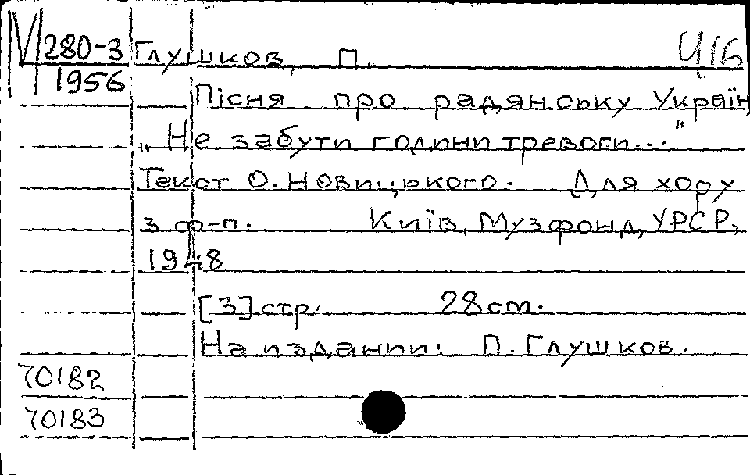 М 280-3 Глушков, П. Ч16
1956
Пісня про радянську Україн
„Не забути години тревоги..."
Текст О. Новицького. Для хору
з ф-п. Київ, Музфонд, УРСР,
1948
[3] стр. 28 см.
На издании: П. Глушков.
70182
70183